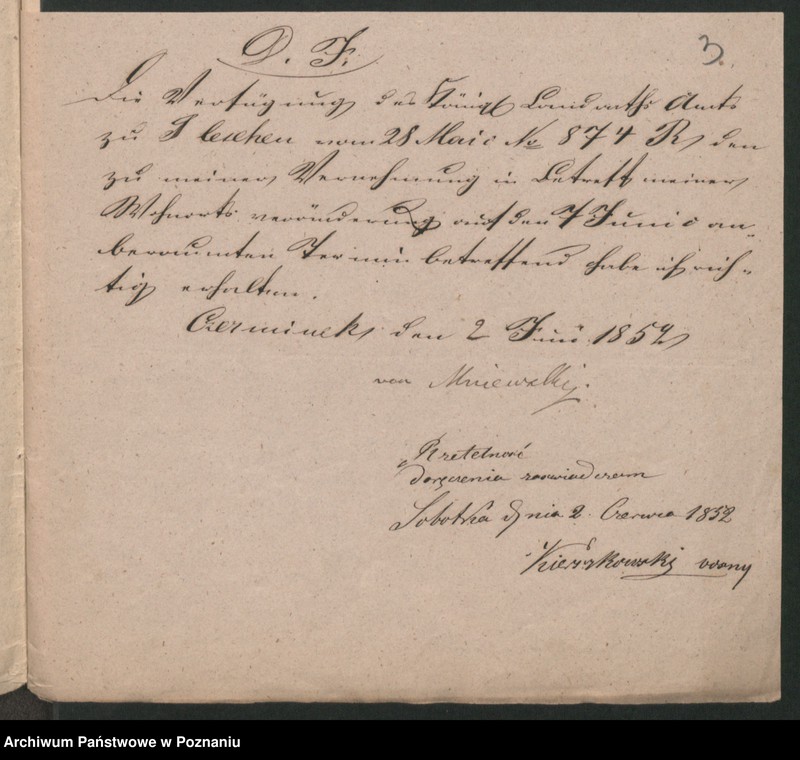 D. J.
3.
Die Verfügung des Königl Landraths Amts
zu Pleschen vom 28 Mai c No 874 R, den
zu meiner Vernehmung in Betreff meiner
Wohnorts veränderung auf den 7 Juni c an„
beraumten Termin betreffend habe ich rich„
tig erhalten.
Czerminek, den 2 Juni 1852
von Mniewski.
Rzetelność
doręczenia zaświadczam
Sobotka dnia 2 Czerwca 1852
Kierzkowski woźny
Archiwum Państwowe w Poznaniu